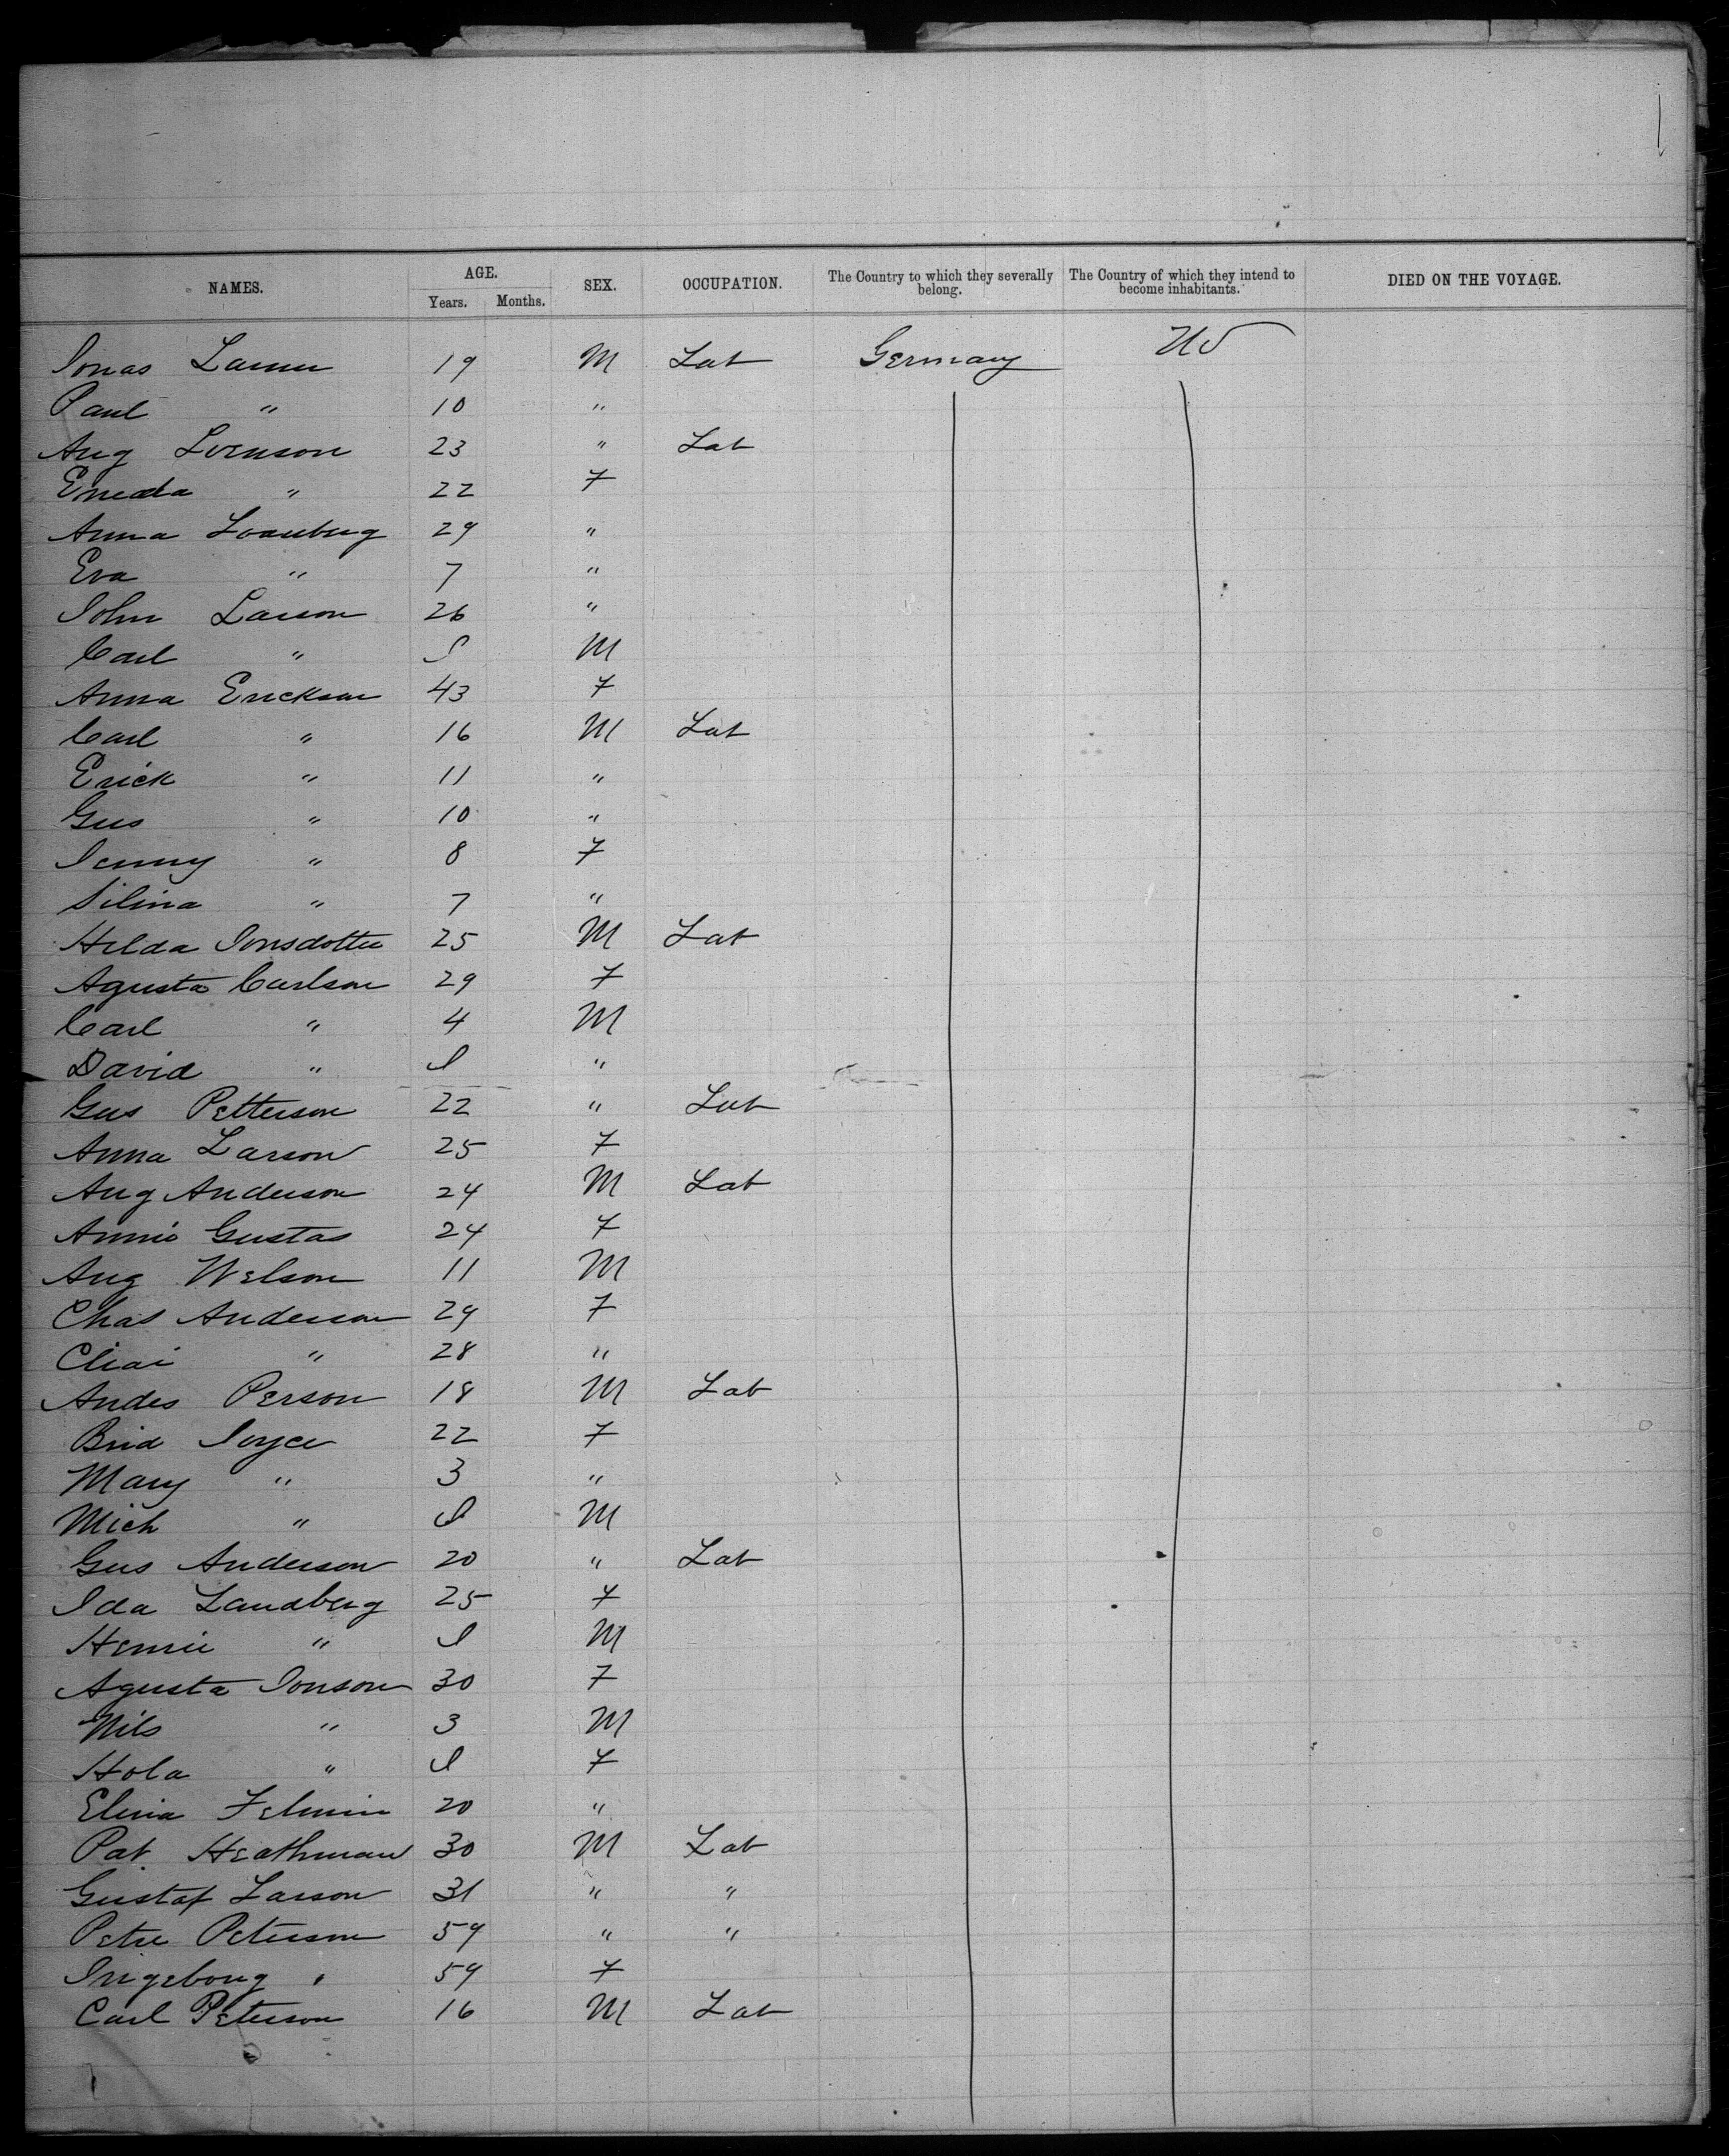 NAMES. AGE. SEX. OCCUPATION. The Country to which they severally belong. The Country of which they intend to become inhabitants. DIED ON THE VOYAGE.
Years. Months.
Jonas 19 M Lab Germany US
Paul " 10 "
Aug 23 " Lab
" 22 F
Anna 29 "
Eva " 7 "
John Larson 26 "
Carl " M
Anna Erickson 43 F
Carl " 16 M Lab
Erick " 11 "
Gus " 10 "
Jenny " 8 F
Silina " 7 "
Hilda Jonsdotter 25 M Lab
Agusta Carlson 29 F
Carl " 4 M
David " I "
Gus Petterson 22 " Lab
Anna Larson 25 F
Aug Anderson 24 M Lab
Annie Gustas 24 F
Aug Welson 11 M
Chas Anderson 29 F
" 28 "
Andes Person 18 M Lab
Brid Joyce 22 F
Mary " 3 "
Mich " I M
Gus Anderson 20 " Lab
Ida Landberg 25 F
" I M
Agusta Jonson 30 F
Nils " 3 M
Hola " I F
20 "
Pat. Heathman 30 M Lab
Gustaf Larson 31 " "
Peter Peterson 59 " "
Ingeborg " 59 F
Carl Peterson 16 M Lab